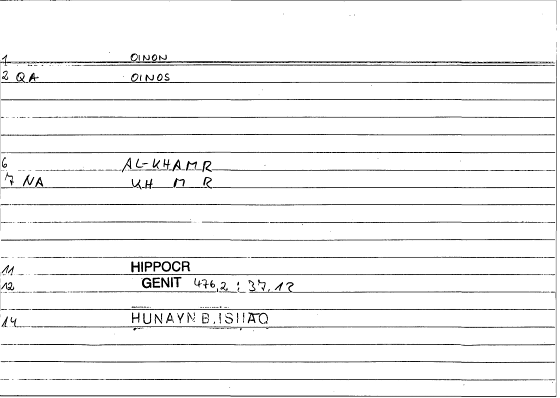 1 OINON
2 QA OINOS
6 AL-KHAMR
7 NA KH M R
11 HIPPOCR
12 GENIT 476,2 : 37,12
14 HUNAYN B.ISHAQ